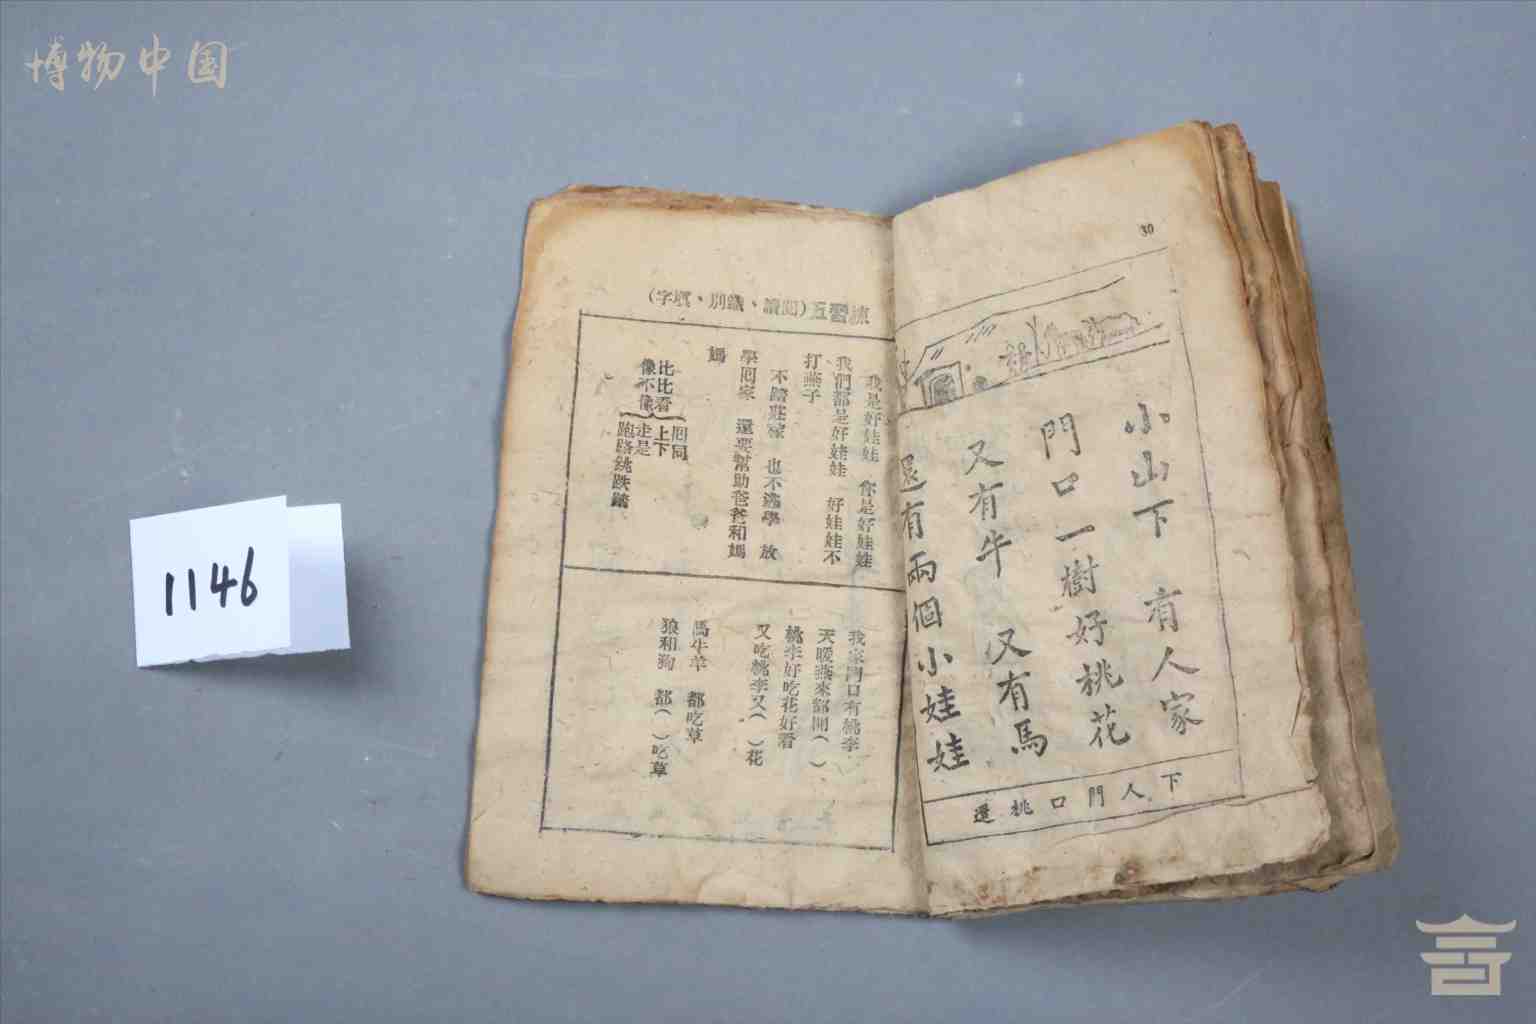 博物中国
1146
30
小山下 有人家
門口一樹好桃花
又有牛 又有馬
還有兩個小娃娃
下人門口桃還
練習五(閱讀、識別、填字)
我是好娃娃 你是好娃娃
我們都是好娃娃 好娃娃不
打燕子
不踏莊稼 也不逃學 放
學囘家 還要幫助爸爸和媽
媽
比比看
像不像
囘同
上下
走是
跑路跳跌踏
我家門口有桃李
天暖燕來都開( )
桃李好吃花好看
又吃桃李又( )花
馬牛羊 都吃草
狼和狗 都( )吃草